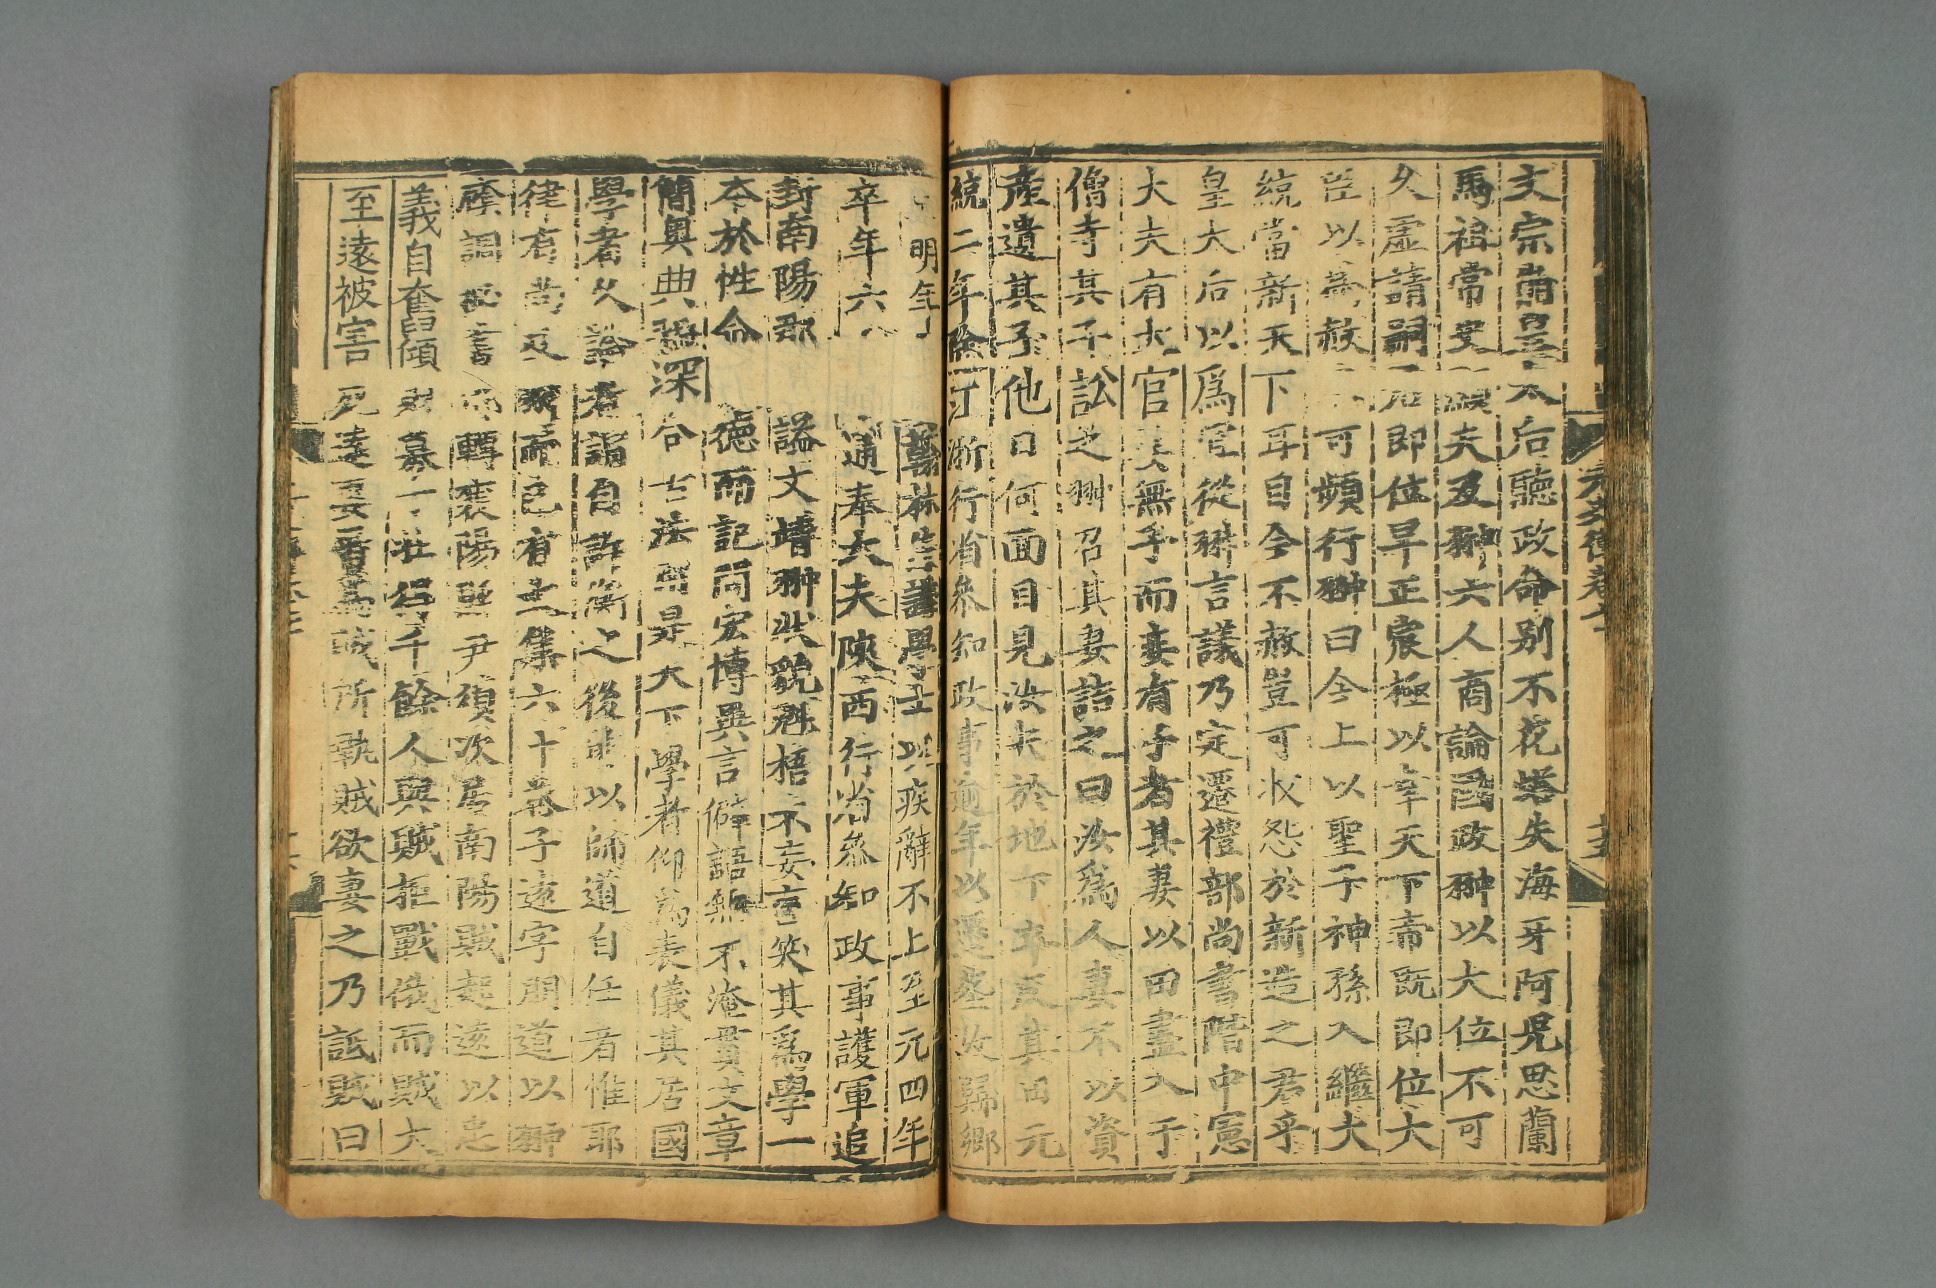 文宗崩皇太后聽政命别不花塔失海牙阿兒思蘭
馬祖常史顯夫及翀六人商論國政翀以大位不可
久虛請嗣君即位早正宸極以幸天下帝既即位大
臣以為赦不可頻行翀曰今上以聖子神孫入繼大
統當新天下耳目今不赦豈可收怨於新造之君乎
皇太后以爲宜從翀言議乃定遷禮部尚書階中憲
大夫有大官妻無子而妾有子者其妻以田盡入于
僧寺其子訟之翀召其妻詰之曰汝爲人妻不以資
産遺其子他日何面目見汝夫於地下卒反其田元
統二年除江浙行省參知政事逾年以遷葬故歸鄉
明年 翰林侍講學士以疾辭不上至元四年
卒年六 通奉大夫陝西行省參知政事護軍追
封南陽郡 謚文靖翀狀貌魁梧不妄言笑其爲學一
本於性命 德而記問宏博異言僻語無不淹貫文章
簡奧典雅深合古法用是天下學者仰爲表儀其居國
學者久論者謂自許衡之後能以師道自任者惟耶
律有尚及翀而已有文集六十卷子遠字朋道以翀
廕調秘書 轉襄陽縣尹須次居南陽賊起遠以忠
義自奮傾財募丁壯得千餘人與賊拒戰俄而賊大
至遠被害死遠妻雷爲賊所執賊欲妻之乃詆賊曰
元史傳卷七